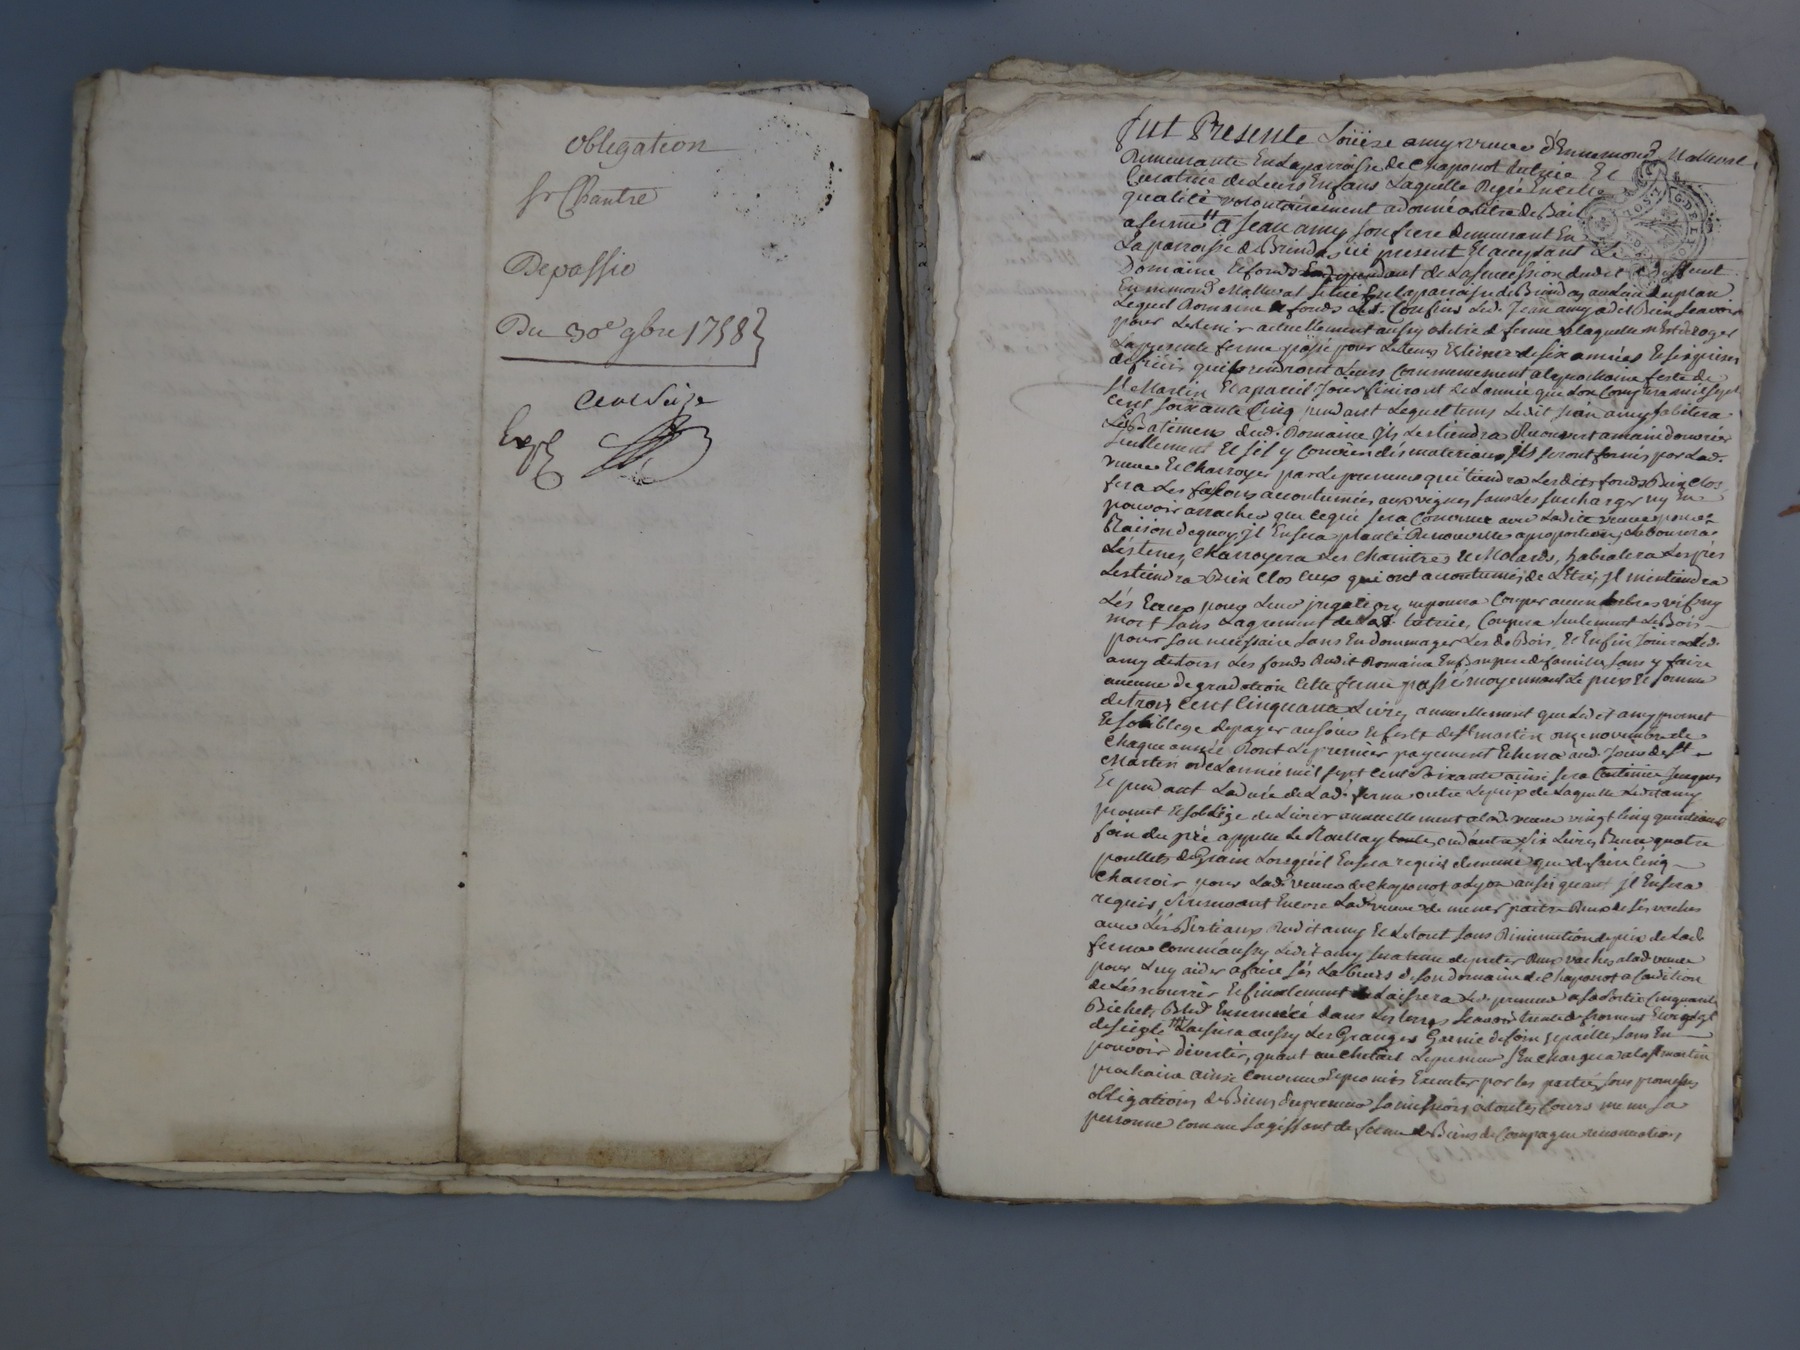 obligation
sr Chantre
Depassio
Du 30e 9bre 1758
cent seize
Exp
Fut Presente Loüise amy veuve d'Ennemond Malleval
Demeurante En la parroisse de Chaponot tutrice Et
Curatrice de Leurs Enfans Laquelle En Cette
qualité volontairement a donné a titre de Bail
a ferme a Jean amy son frere Demeurant En
La parroisse de Brindas icy present Et acceptant Le
Domaine Et fonds dependant de La succession dudit
Ennemond Malleval situé En la parroisse de Brindas au Lieu du plan
Lequel Domaine & fonds Led. Jean amy a dit Bien sçavoir
pour Les tenir actuellement aussy a titre de ferme a laquelle
La presente ferme passée pour Le tems Et terme de six années Et six prises
de fruits qui prendront Leurs Commencement a la prochaine feste de
St Martin Et a pareil Jour finiront de L'année que L'on Comptera mil sept
Cent soixante Cinq pendant Lequel tems Ledit Jean amy habitera
Les Batimens dud. Domaine Les tiendra Recouvert a main d'ouvrier
seullement Et s'il y Convien des materiaux Ils seront fournis par Lad.
veuve Et Charroyer par Le preneur qui tiendra Les dits fonds Bien Clos,
fera Les façons accoutumées aux vignes sans Les surcharger ny En
pouvoir arracher que ce qui sera Convenue avec Ladite veuve
Raison de quoy, il En sera planté De nouvelles a proportion, Labourera
Les terres, Charroyera Les Chaintres Et Molards, Les prés
Les tiendra Bien Clos Ceux qui ont accoutumés de L'être, Il maintiendra
Les Eaux pour Leur irrigations ne pourra Couper aucun arbres vif ny
mort sans L'agrement de Lad. tutrice, Coupera seulement Le Bois
pour son necessaire sans Endommager Les d. Bois, Et Enfin Jouira Led.
amy de tous Les fonds dudit Domaine En Bon pere de famille sans y faire
aucune dégradation Cette ferme passée moyennant Le prix Et somme
de trois Cent Cinquante Livres annuellement que Ledit amy promet
Et s'oblige de payer au Jour Et feste de St martin onze novembre de
Chaque année Dont Le premier payement Echerra aud. Jour de St
Martin de L'année mil sept Cent soixante ainsi sera Continuer Jusques
Et pendant La durée de Lad. ferme outre Le prix de Laquelle Ledit amy
promet Et s'oblige de Livrer annuellement a lad. veuve vingt Cinq quintaux
foin du pré appellé Le six Livres Beure quatre
poullets de Grain Lorsqu'il En sera requis de meme que de faire Cinq
Charroir pour Lad. veuve de Chaponot a Lyon aussy quant il En sera
requis, Encore Lad. veuve de mener paitre Deux de ses vaches
avec Les Bestiaux dudit amy Et Le tout sans Diminution du prix de Lad.
ferme comme aussy Ledit amy sera tenu de preter Deux vaches a lad. veuve
pour Luy aider a faire ses Labeurs de son domaine de Chaponot a Condition
de Les nourrir Et finalement Laissera Led. preneur a sa sortie Cinquante
Bichets Bled Ensemencé dans Les terres sçavoir trente de froment Et vingt
de seigle Laissera aussy Les Granges Garnie de foin Et paille sans En
pouvoir divertir, quant au Chetail Le preneur s'En Chargera a la St martin
prochaine ainsi Convenu Et promis Executer par les parties sous promesses
obligations de Biens Du preneur soumissions a toutes Cours meme sa
personne comme s'agissant de ferme de Biens de Campagne renonciations